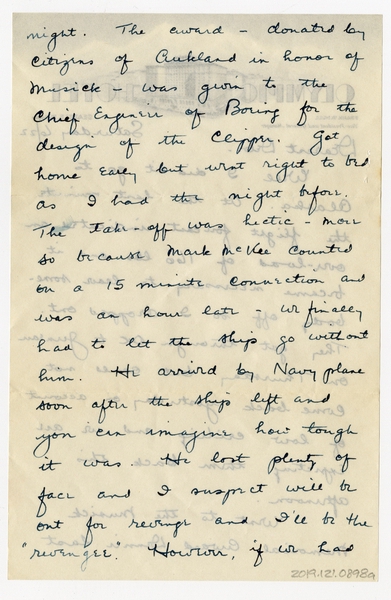 night. The award - donated by
citizens of Aukland in honor of
Musick - was given to the
Chief Engineer of Boeing for the
design of the Clipper. Got
home early but went right to bed
as I had the night before.
The take-off was hectic - more
so because Mark McKee counted
on a 15 minute connection and
was an hour late - we finally
had to let the ship go without
him. He arrived by Navy plane
soon after the ship left and
you can imagine how tough
it was. He lost plenty of
face and I suspect will be
out for revenge and I'll be the
"revengee". However, if we had
2019.121.0898a